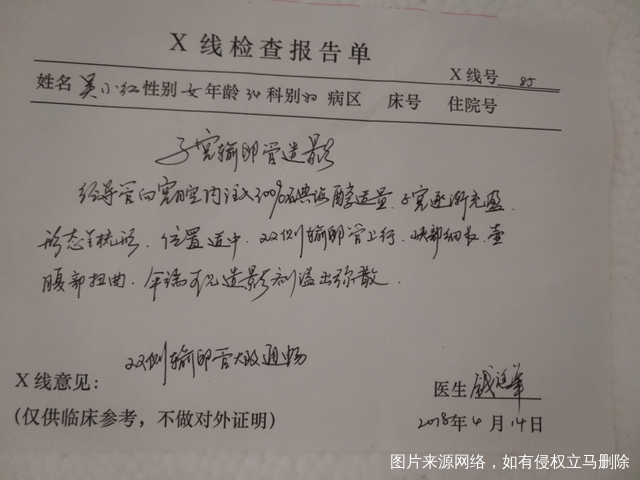 X线检查报告单
X线号 85
姓名 吴小红 性别 女 年龄 34 科别 妇 病区 床号 住院号
子宫输卵管造影
经导管向宫腔内注入300%碘海醇适量.子宫逐渐充盈.
形态呈梭形.位置适中.双侧输卵管上行.峡部细长.壶
腹部扭曲.伞端可见造影剂溢出弥散.
双侧输卵管大致通畅
X线意见:
医生
(仅供临床参考，不做对外证明)
2018年4月14日
图片来源网络，如有侵权立马删除